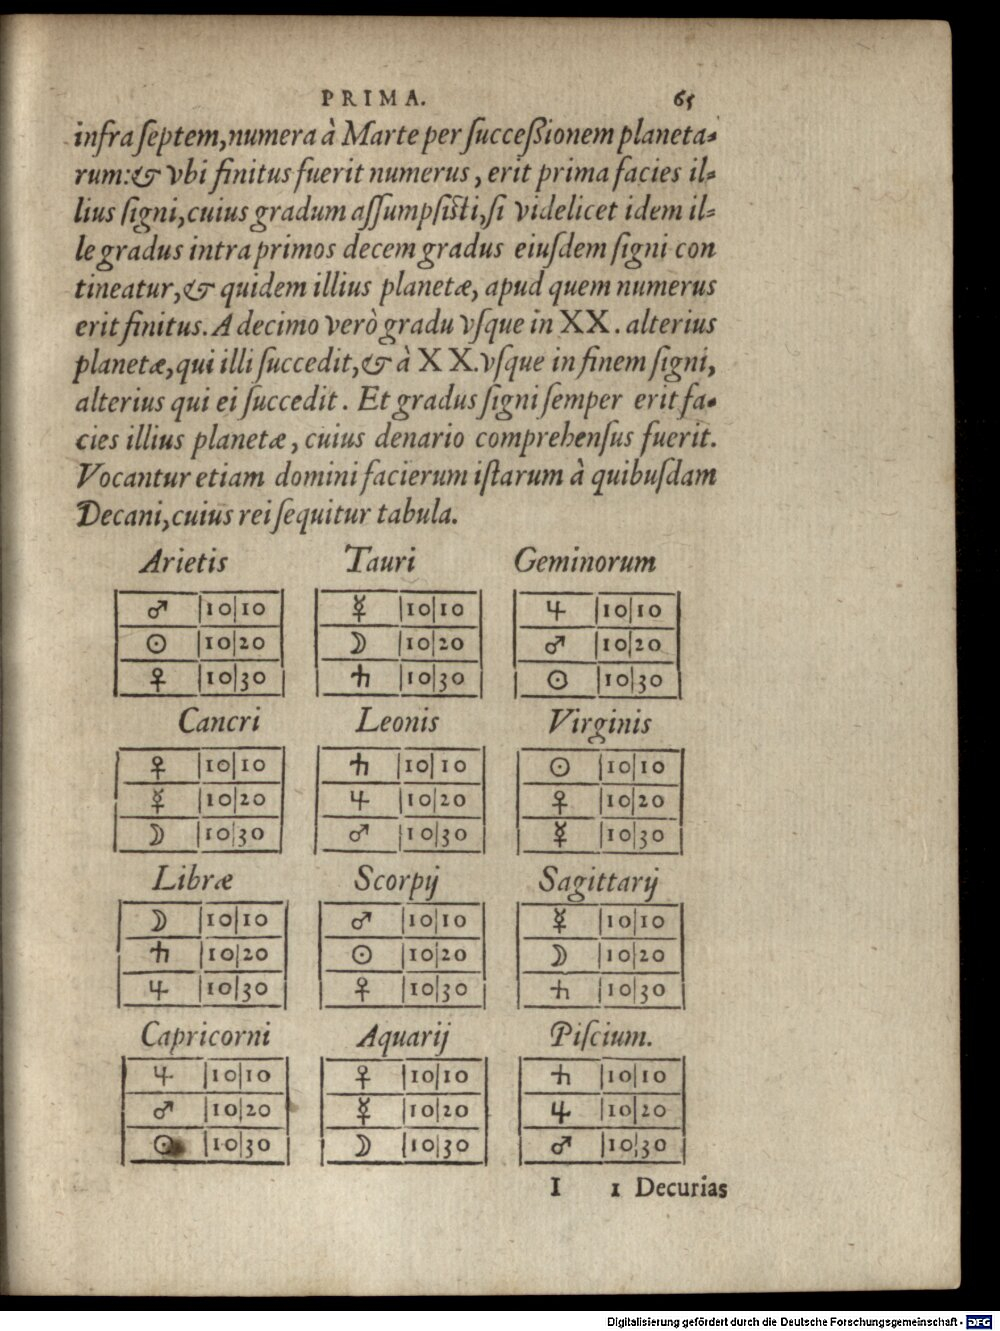 PRIMA. 65
infra ſeptem, numera à Marte per ſucceſsionem planeta-
rum: & vbi finitus fuerit numerus, erit prima facies il-
lius ſigni, cuius gradum aſſumpſiſti, ſi videlicet idem il-
le gradus intra primos decem gradus eiuſdem ſigni con
tineatur, & quidem illius planetæ, apud quem numerus
erit finitus. A decimo verò gradu vſque in XX. alterius
planetæ, qui illi ſuccedit, & à XX. vſque in finem ſigni,
alterius qui ei ſuccedit. Et gradus ſigni ſemper erit fa-
cies illius planetæ, cuius denario comprehenſus fuerit.
Vocantur etiam domini facierum iſtarum à quibuſdam
Decani, cuius rei ſequitur tabula.
Arietis Tauri Geminorum
♂ 10 10 ☿ 10 10 ♃ 10 10
☉ 10 20 ☽ 10 20 ♂ 10 20
♀ 10 30 ♄ 10 30 ☉ 10 30
Cancri Leonis Virginis
♀ 10 10 ♄ 10 10 ☉ 10 10
☿ 10 20 ♃ 10 20 ♀ 10 20
☽ 10 30 ♂ 10 30 ☿ 10 30
Libræ Scorpij Sagittarij
☽ 10 10 ♂ 10 10 ☿ 10 10
♄ 10 20 ☉ 10 20 ☽ 10 20
♃ 10 30 ♀ 10 30 ♄ 10 30
Capricorni Aquarij Piſcium.
♃ 10 10 ♀ 10 10 ♄ 10 10
♂ 10 20 ☿ 10 20 ♃ 10 20
☉ 10 30 ☽ 10 30 ♂ 10 30
I 1 Decurias
Digitalisierung gefördert durch die Deutsche Forschungsgemeinschaft - DFG